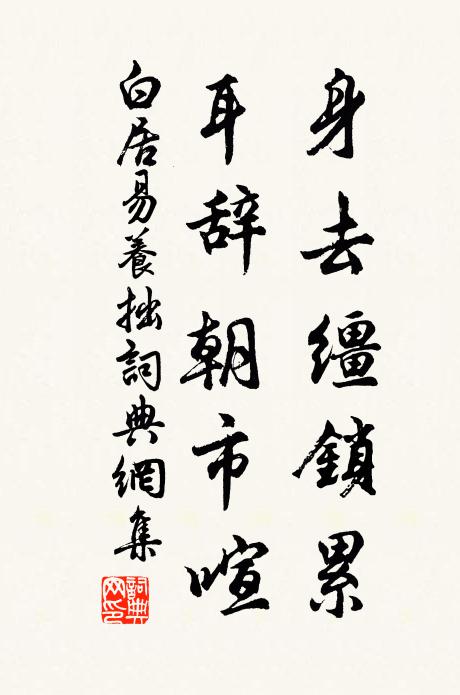 身去缰鎖累
耳辞朝市喧
白居易養拙詞典網集
詞典网印